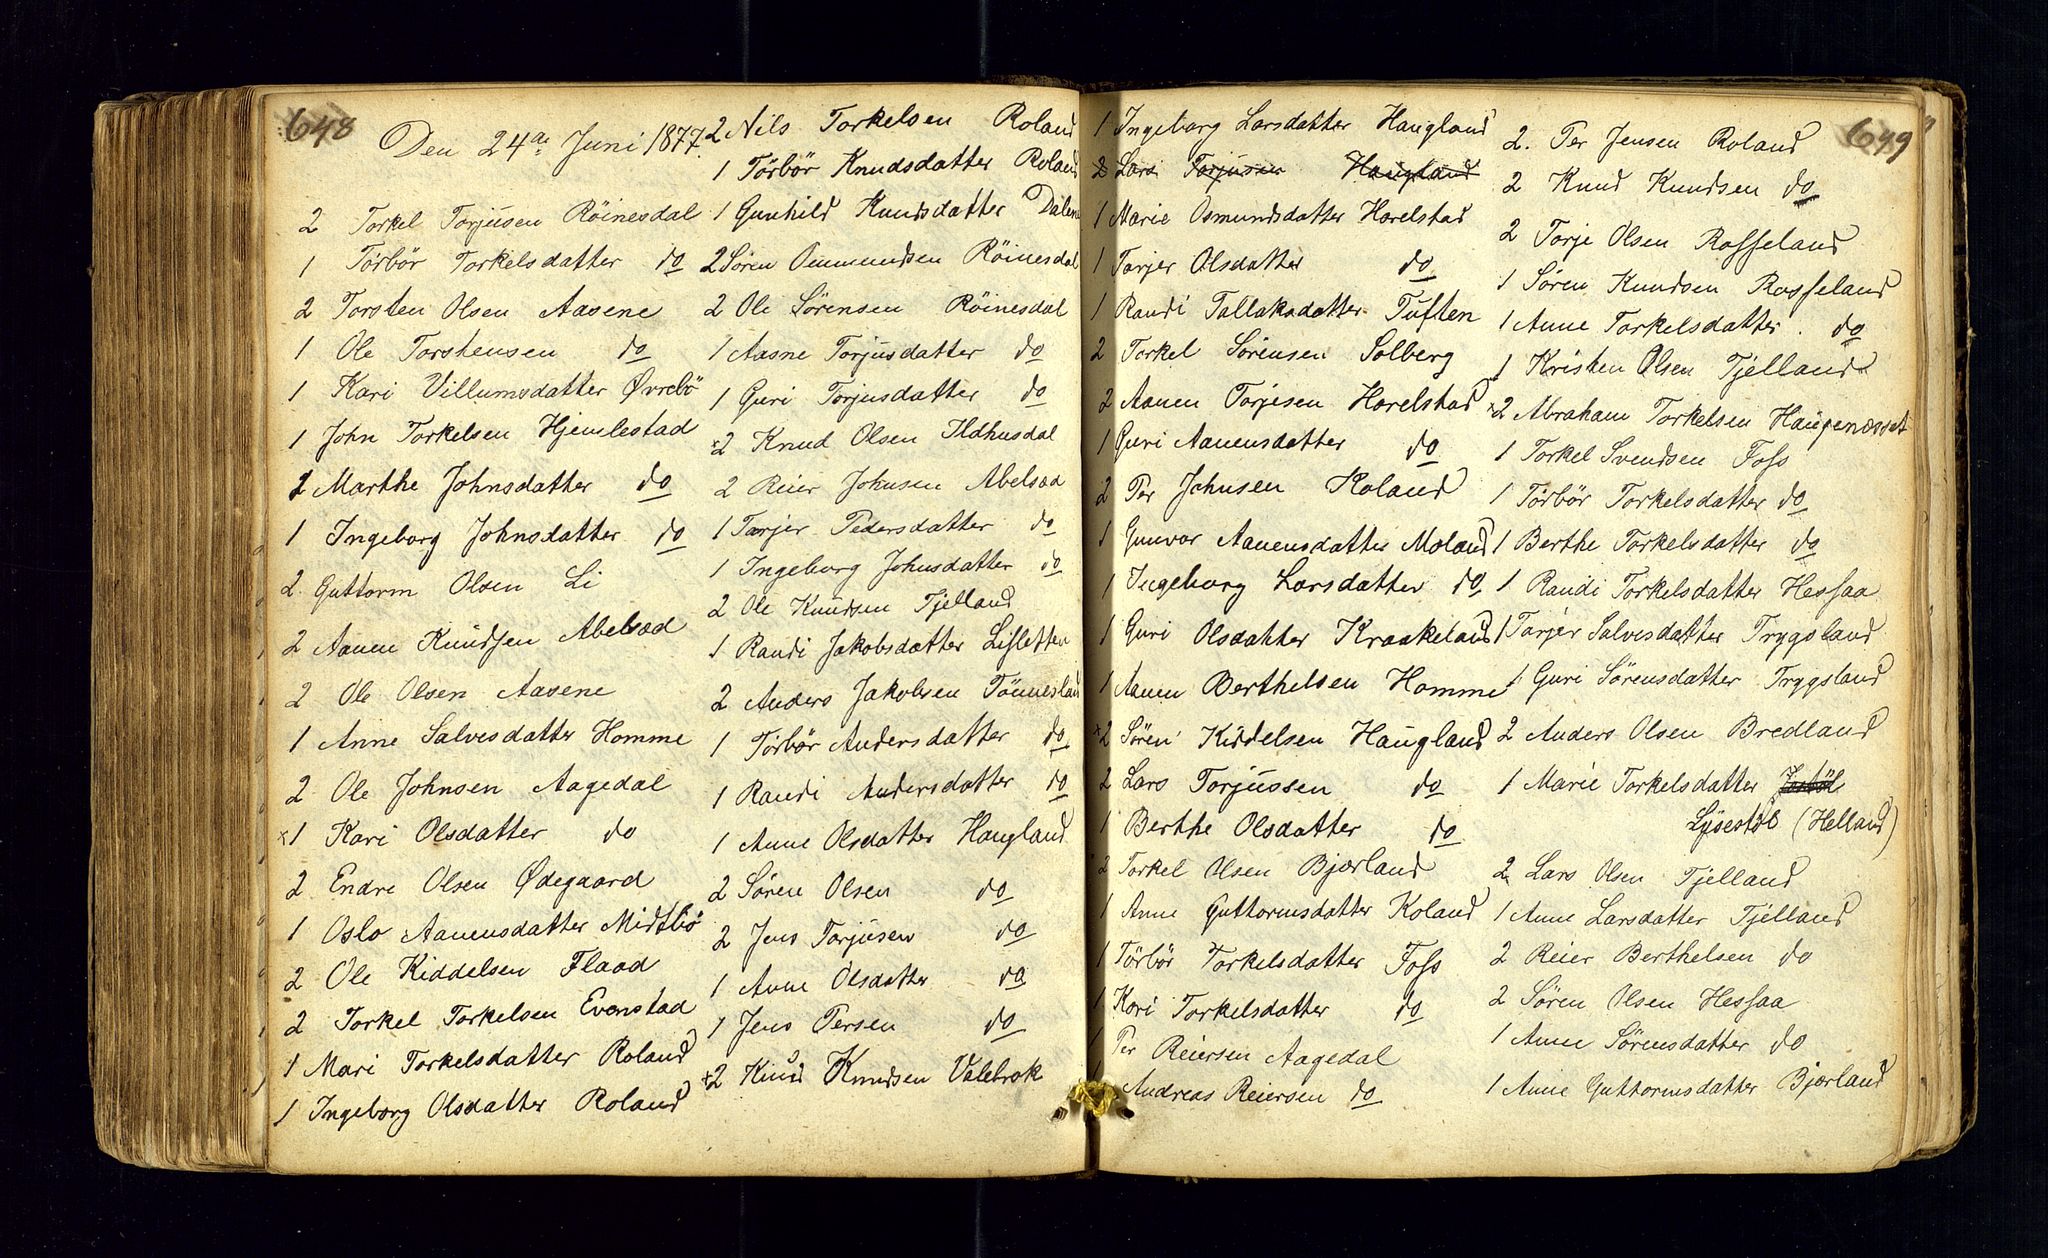 648
Den 24de Juni 1877.
2 Torkel Torjusen Röinesdal
1 Törbör Torkelsdatter do
2 Torsten Olsen Aasene
1 Ole Torstensen do
1 Kari Villumsdatter Øvrebö
1 John Torkelsen Hjemlestad
2 Marthe Johnsdatter do
1 Ingeborg Johnsdatter do
2. Guttorm Olsen Li
2 Aanen Knudsen Abelsæd
2 Ole Olsen Aasene
1 Anne Salvesdatter Homme
2 Ole Johnsen Aagedal
×1 Kari Olsdatter do
2 Endre Olsen Ødegaard
1 Oslo Aanensdatter Midtbö
2 Ole Kiddelsen Flaad
2 Torkel Torkelsen Evenstad
1 Mari Torkelsdatter Roland
1 Ingeborg Olsdatter Roland
2 Nils Torkelsen Roland
1 Törbör Knudsdatter Roland
1 Gunhild Knudsdatter Dalene
2 Sören Ommundsen Röinesdal
2 Ole Sörensen Röinesdal
1 Aasne Torjusdatter do
1 Guri Torjusdatter do
×2 Knud Olsen Ildhusdal
2 Reier Johnsen Abelsæd
1 Tarjer Pedersdatter do
1 Ingeborg Johnsdatter do
2 Ole Knudsen Tjelland
1 Randi Jakobsdatter Lisletten
2 Anders Jakobsen Tönnesland
1 Törbör Andersdatter do
1 Randi Andersdatter do
1 Anne Olsdatter Haugland
2 Sören Olsen do
2 Jens Torjusen do
1 Anne Olsdatter do
1 Jens Persen do
×2 Knud Knudsen Valebrok
1 Ingeborg Larsdatter Haugland
2 Lars Torjusen Haugland
1 Marie Osmundsdatter Horelstad
1 Tarjer Olsdatter do
1 Randi Tallaksdatter Tuften
2 Torkel Sörensen Solberg
2 Aanen Torjesen Horelstad
1 Guri Aanensdatter do
2 Per Johnsen Roland
1 Gunvor Aanensdatter Moland
1 Ingeborg Larsdatter do
1 Guri Olsdatter Kraakeland
1 Aanen Berthelsen Homme
×2 Sören Kiddelsen Haugland
2 Lars Torjussen do
1 Berthe Olsdatter do
2 Torkel Olsen Bjærland
1 Anne Guttormsdatter Roland
1 Törbör Torkelsdatter Foss
1 Kari Torkelsdatter do
1 Per Reiersen Aagedal
1 Andreas Reiersen do
649
2. Per Jensen Roland
2 Knud Knudsen do
2 Torje Olsen Rosseland
1 Sören Knudsen Rosseland
1 Anne Torkelsdatter. do
1 Kristen Olsen Tjelland
×2 Abraham Torkelsen Haugenæsset
1 Torkel Svendsen Foss
1 Törbör Torkelsdatter do
1 Berthe Torkelsdatter do
1 Randi Torkelsdatter Hessaa
1 Tarjer Salvesdatter Trygsland
1 Guri Sörensdatter Trygsland
2 Anders Olsen Bredland
1 Marie Torkelsdatter
Ljosestöl (Helland)
2 Lars Olsen Tjelland
1 Anne Larsdatter Tjelland
2 Reier Berthelsen do
2 Sören Olsen Hessaa
1 Anne Sörensdatter do
1 Anne Guttormsdatter Bjærland